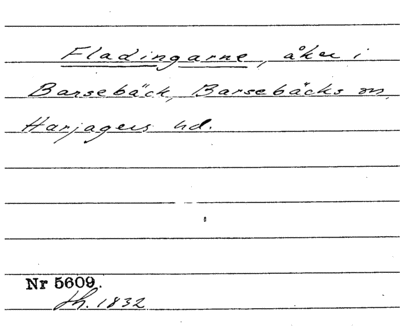 Fladingarne, åker i
Barsebäck, Barsebäcks sn,
Harjagers hd.
Nr 5609.
fh. 1832